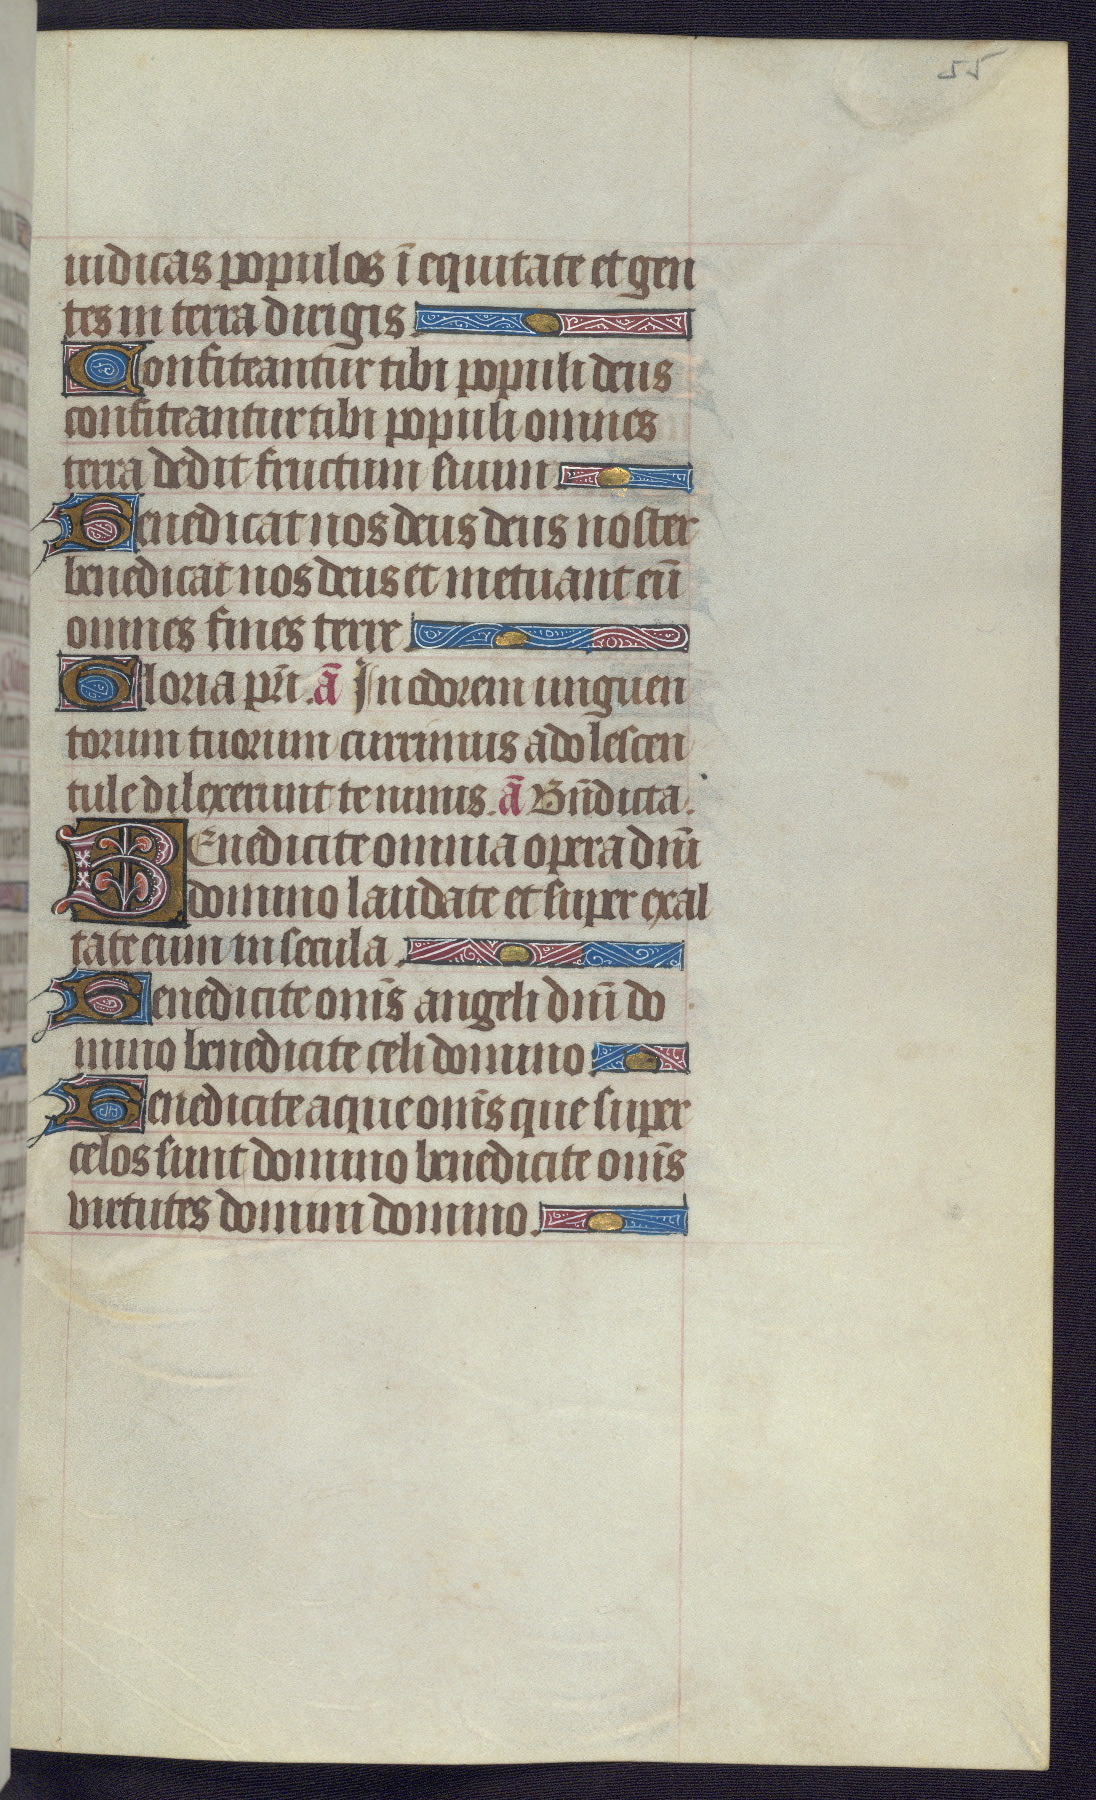 55
iudicas populos ī equitate et gen
tes in terra dirigis.
Confiteantur tibi populi deus
confiteantur tibi populi omnes
terra dedit fructum suum.
Benedicat nos deus deus noster
benedicat nos deus et metuant eū
omnes fines terre.
Gloria pr̄i. ā In odorem unguen
torum tuorum currimus adolescen
tule dilexerunt te nimis. ā Bn̄dicta.
BEnedicite omnia opera dn̄i
domino laudate et super exal
tate eum in secula.
Benedicite om̄s angeli dn̄i do
mino benedicite celi domino.
Benedicite aque om̄s que super
celos sunt domino benedicite om̄s
virtutes domini domino.